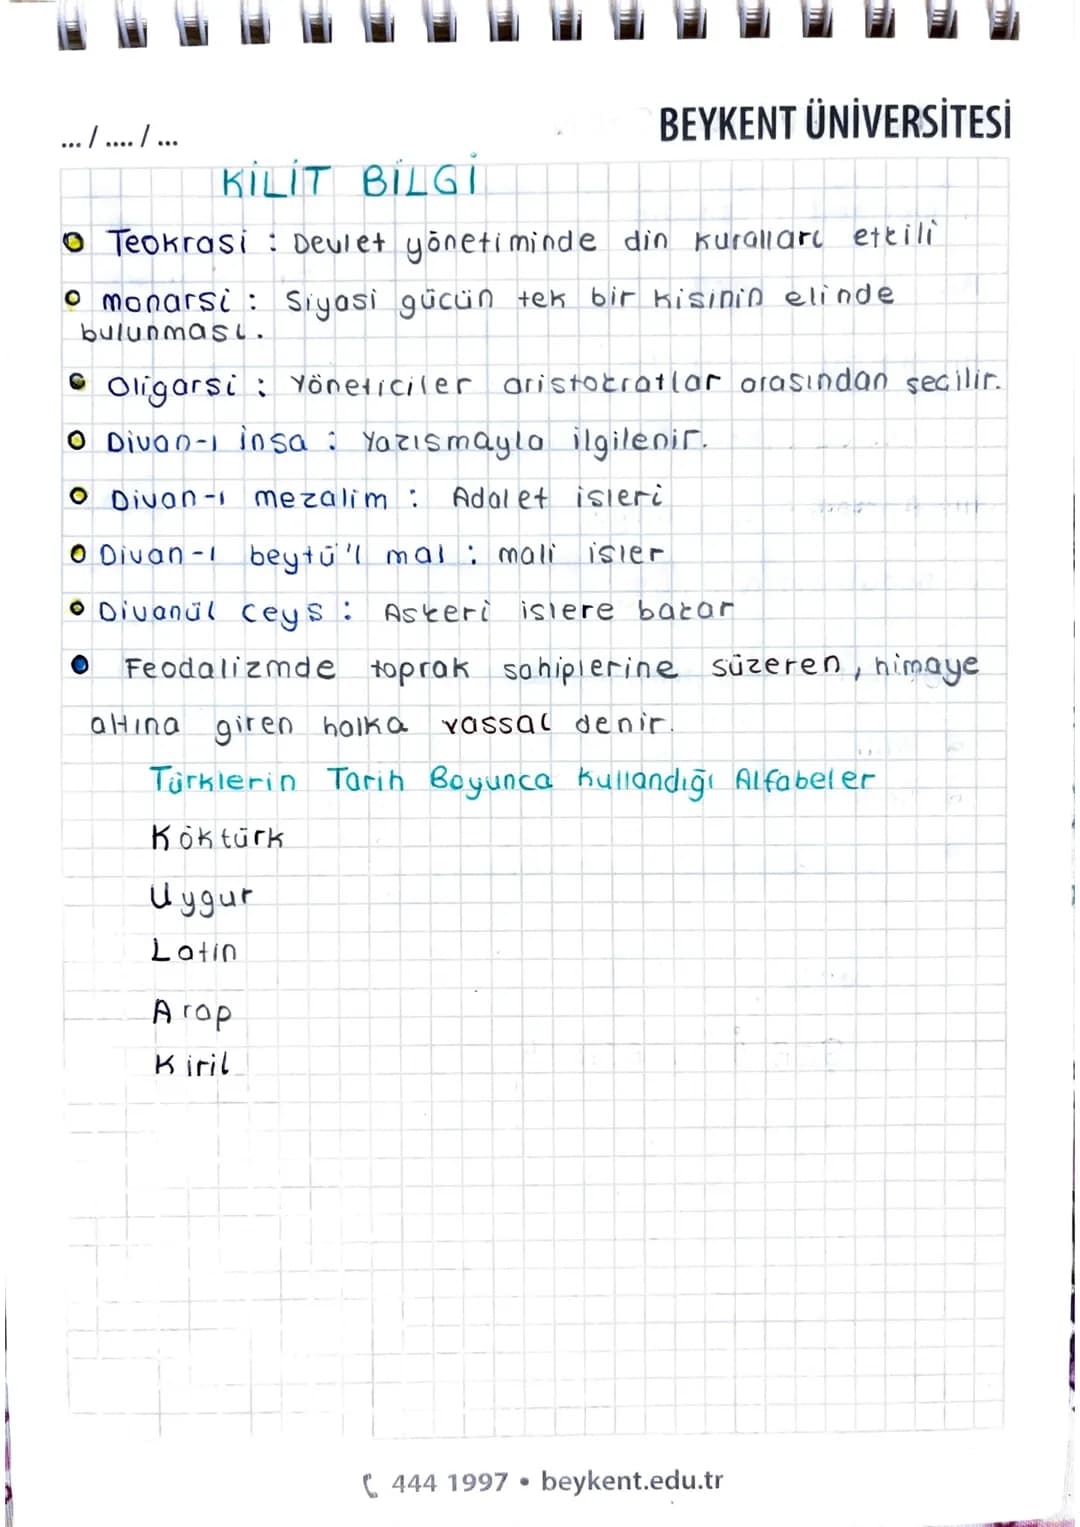 BEYKENT ÜNİVERSİTESİ
... / .... / ...
KİLİT BİLGİ
Teokrasi : Devlet yönetiminde din kuralları etkili
monarsi : Siyasi gücün tek bir kisinin elinde
bulunması.
Oligarsi : Yöneticiler aristokratlar arasından secilir.
Divan-ı insa : Yazısmayla ilgilenir.
Divan-ı mezalim : Adalet isleri
Divan-ı beytü'l mal : mali isler
Divanül ceys : Askeri islere bakar
Feodalizmde toprak sahiplerine süzeren, himaye
altına giren halka vassal denir.
Türklerin Tarih Boyunca Kullandığı Alfabeler
Köktürk
Uygur
Latin
Arap
Kiril
444 1997 • beykent.edu.tr